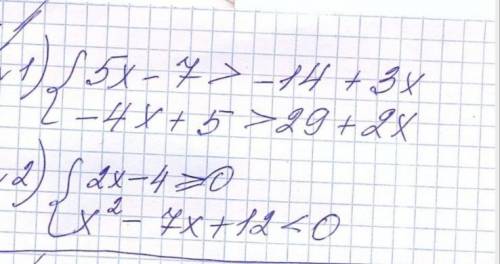 1) { 5x - 7 > -14 + 3x
-4x + 5 > 29 + 2x
2) { 2x - 4 ≥ 0
x² - 7x + 12 < 0